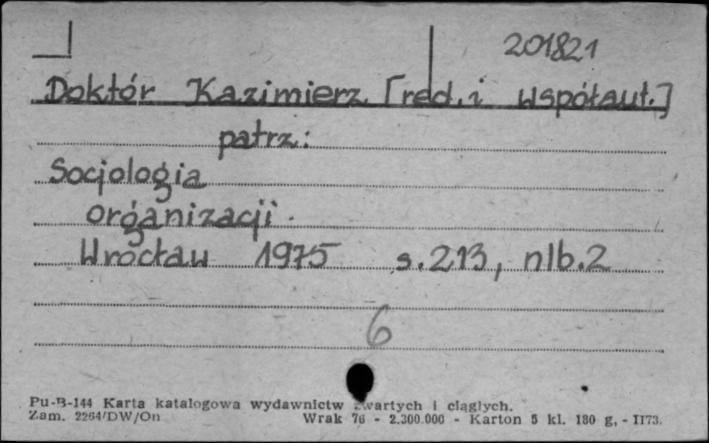 201821
Doktór Kazimierz [red. i współaut.]
patrz:
Socjologia
organizacji.
Wrocław 1975 s. 213, nlb. 2
6
Pu-B-144 Karta katalogowa wydawnictw zwartych i ciągłych.
Zam. 2264/DW/On Wrak 76 - 2.300.000 - Karton 5 kl. 180 g, - II73.